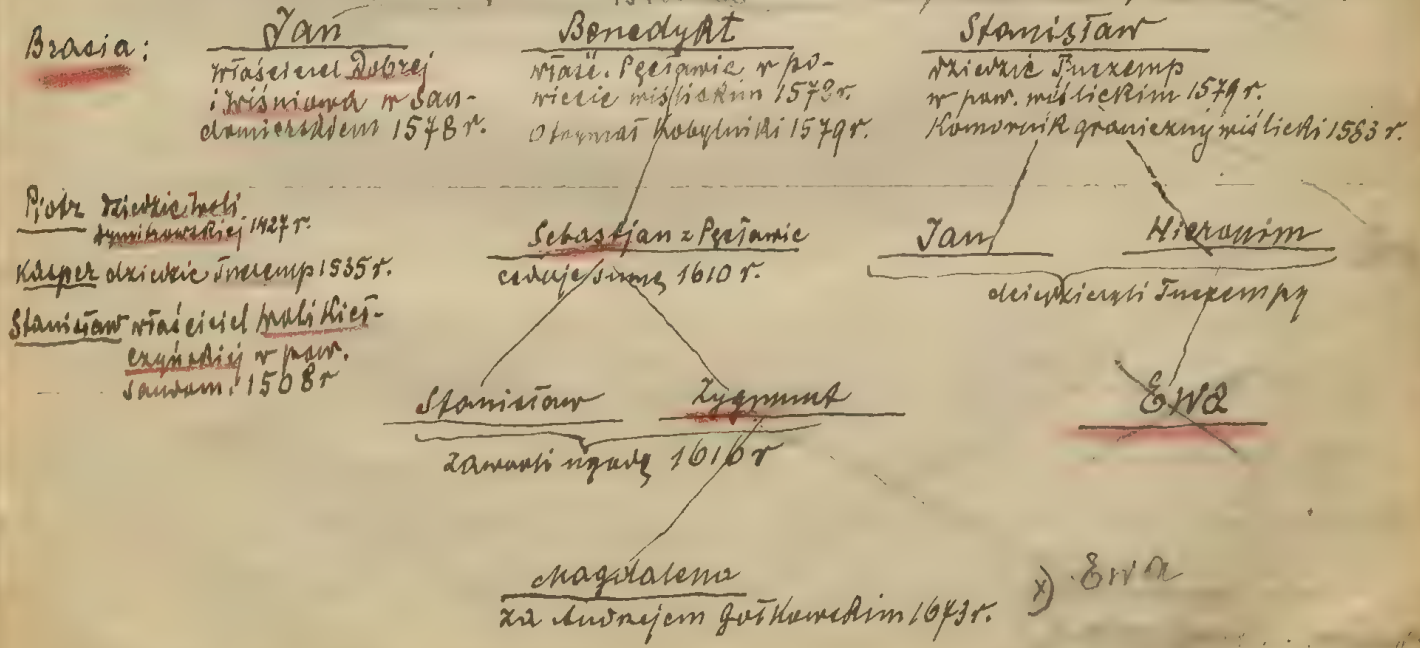 Bracia:
Jan
właściciel Dobrej
i Wiśniowa w San-
domierskiem 1578 r.
Benedykt
właśc. Pęcławic w po-
wiecie wiślickim 1578 r.
Otrzymał Kobylniki 1579 r.
Stanisław
dziedzic Tuczemp
w pow. wiślickim 1579 r.
Komornik graniczny wiślicki 1583 r.
Piotr dziedzic Woli
1427 r.
Kasper dziedzic Tuczemp 1535 r.
Stanisław właściciel Woli Kieł-
czyńskiej w pow.
sandom. 1508 r
Sebastjan z Pęcławic
ceduje sumę 1610 r.
Jan
Hieronim
dziedziczyli Tuczempy
Stanisław
Zygmunt
zawarli ugodę 1616 r
Ewa
Magdalena
za Andrzejem Gołkowskim 1673 r.
x) Ewa